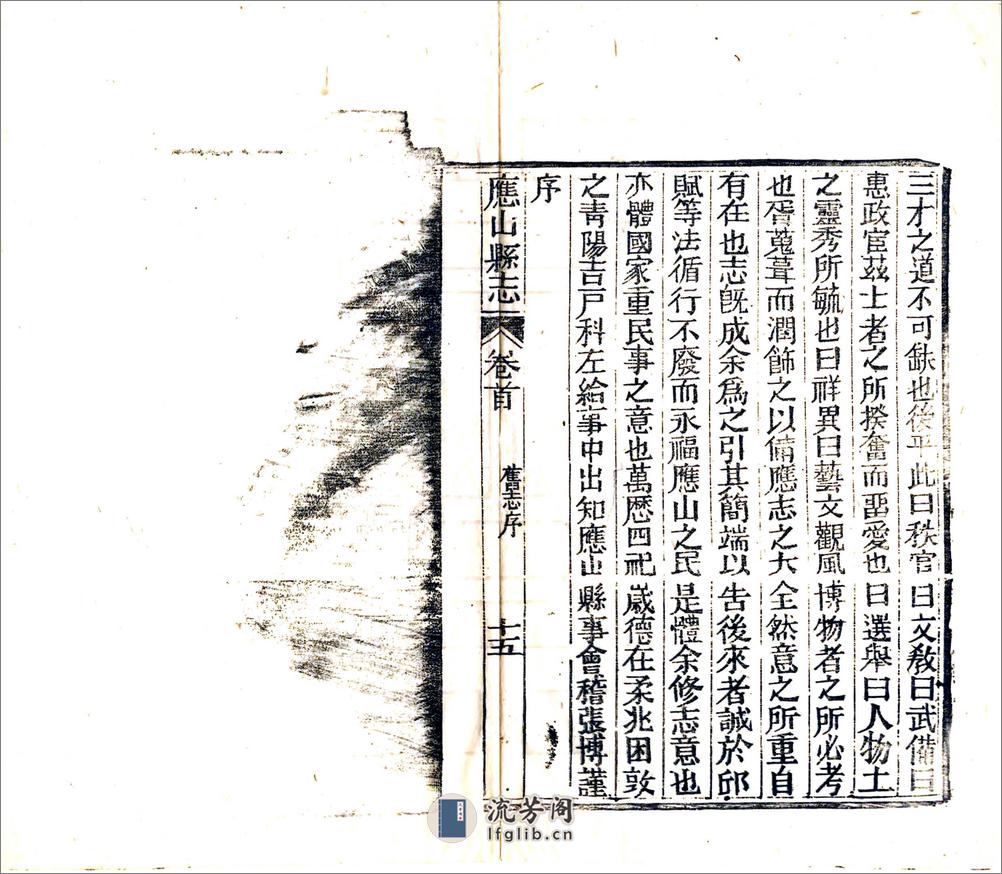 三才之道不可缺也後乎此曰秩官曰文敎曰武備曰
惠政宦茲土者之所揆奮而遏愛也曰選舉曰人物土
之靈秀所毓也曰祥異曰藝文觀風博物者之所必考
也胥蒐葺而潤飾之以備應志之大全然意之所重自
有在也志旣成余爲之引其簡端以告後來者誠於邱
賦等法循行不廢而永福應山之民是體余修志意也
亦體國家重民事之意也萬厯四祀歲德在柔兆困敦
之靑陽吉戸科左給事中出知應山縣事會稽張博謹
序
應山縣志 卷首 舊志序 十五
流芳阁
lfglib.cn